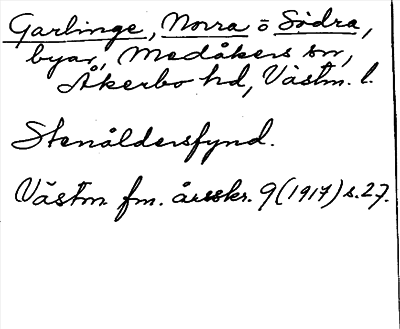 Garlinge, Norra o Södra,
byar, Medåkers sn,
Åkerbo hd, Västm. l.
Stenåldersfynd.
Västm. fm. årsskr. 9 (1917) s. 27.